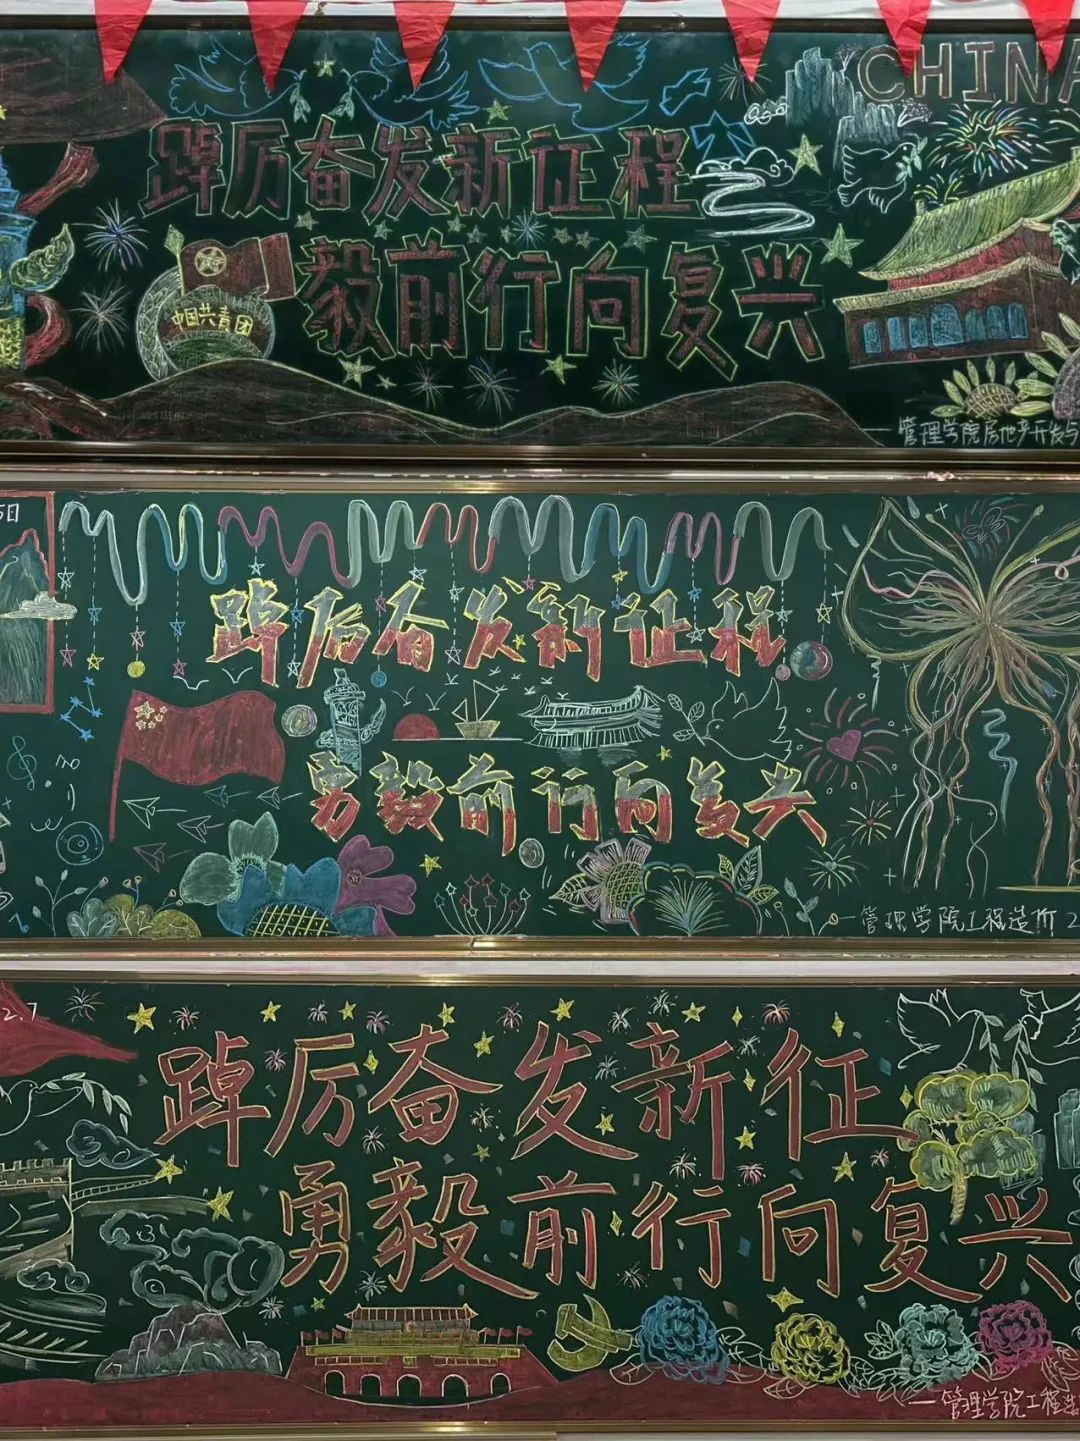 CHINA
踔厉奋发新征程
毅前行向复兴
中国共青团
—管理学院房地产开发与
5日
踔厉奋发新征程
勇毅前行向复兴
—管理学院工程造价 2
2.7
踔厉奋发新征
勇毅前行向复兴
—管理学院工程造